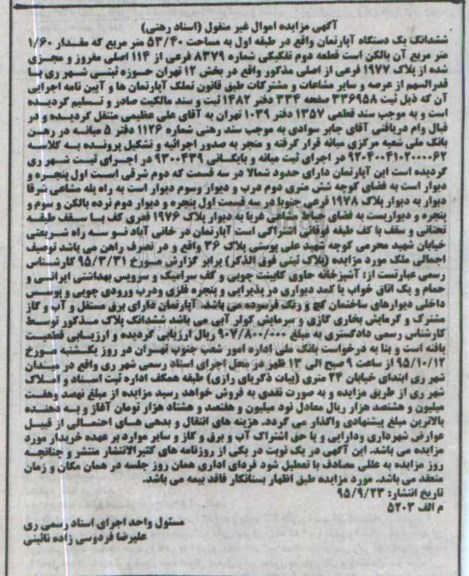 آگهی مزایده اموال غیر منقول (اسناد رهنی)
ششدانگ یک دستگاه آپارتمان واقع در طبقه اول به مساحت ۵۳/۴۰ متر مربع که مقدار ۱/۶۰
متر مربع آن بالکن است قطعه دوم تفکیکی شماره ۸۳۷۹ فرعی از ۱۱۴ اصلی مفروز و مجزی
شده از پلاک ۱۹۷۷ فرعی از اصلی مذکور واقع در بخش ۱۲ تهران حوزه ثبتی شهر ری با
قدرالسهم از عرصه و سایر مشاعات و مشترکات طبق قانون تملک آپارتمان ها و آیین نامه اجرایی
آن که ذیل ثبت ۳۳۶۹۵۸ صفحه ۳۳۴ دفتر ۱۴۸۲ ثبت و سند مالکیت صادر و تسلیم گردیده
است و به موجب سند قطعی ۱۳۵۷ دفتر ۱۰۳۹ تهران به آقای علی عظیمی منتقل گردیده و در
قبال وام دریافتی آقای جابر سوادی به موجب سند رهنی شماره ۱۱۲۶ دفتر ۵ میانه در رهن
بانک ملی شعبه مرکزی میانه قرار گرفته و منجر به صدور اجرائیه و تشکیل پرونده به کلاسه
۹۲۰۴۰۰۴۱۰۲۰۰۰۰۶۲ در اجرای ثبت میانه و بایگانی ۹۳۰۰۴۳۹ در اجرای ثبت شهر ری
گردیده است این آپارتمان دارای حدود شمالا در سه قسمت که دوم شرقی است اول پنجره و
دیوار است به فضای کوچه شش متری دوم درب و دیوار وسوم دیوار است به راه پله مشاعی شرقا
دیوار به دیوار پلاک ۱۹۷۸ فرعی جنوبا در سه قسمت اول پنجره و دیوار دوم نرده بالکن و سوم
پنجره و دیواریست به فضای حیاط مشاعی غربا به دیوار پلاک ۱۹۷۶ فرعی کف با سقف طبقه
تحتانی و سقف با کف طبقه فوقانی اشتراکی است آپارتمان در خانی آباد نو سه راه شریعتی
خیابان شهید محرمی کوچه شهید علی پوستی پلاک ۳۶ واقع و در تصرف راهن می باشد توصیف
اجمالی ملک مورد مزایده (پلاک ثبتی فوق الذکر) برابر گزارش مورخ ۹۵/۳/۳۱ کارشناس
رسمی عبارتست از: آشپزخانه حاوی کابینت چوبی و کف سرامیک و سرویس بهداشتی ایرانی و
حمام و یک اتاق خواب با کمد دیواری در پذیرایی و پنجره فلزی ودرب ورودی چوبی و پوشش
داخلی دیوارهای ساختمان گچ و رنگ فرسوده می باشد. آپارتمان دارای برق مستقل و آب و گاز
مشترک و گرمایش بخاری گازی و سرمایش کولر آبی می باشد ششدانگ پلاک مذکور توسط
کارشناس رسمی دادگستری به مبلغ ۹۰۷/۸۰۰/۰۰۰ ریال ارزیابی گردیده و ارزیابی قطعیت
یافته است و بنا به درخواست بانک ملی اداره امور شعب جنوب تهران در روز یکشنبه مورخ
۹۵/۱۰/۱۲ از ساعت ۹ صبح الی ۱۲ ظهر در محل اجرای اسناد رسمی شهر ری واقع در میدان
شهر ری ابتدای خیابان ۲۴ متری (بیات ذکریای رازی) طبقه همکف اداره ثبت اسناد و املاک
شهر ری از طریق مزایده و به صورت نقدی به فروش خواهد رسید مزایده از مبلغ نهصد وهفت
میلیون و هشتصد هزار ریال معادل نود میلیون و هفتصد و هشتاد هزار تومان آغاز و به دهنده
بالاترین مبلغ پیشنهادی واگذار می گردد. هزینه های انتقال و بدهی های احتمالی از قبیل
عوارض شهرداری ودارایی و یا حق اشتراک آب و برق و گاز و سایر موارد بر عهده خریدار مورد
مزایده می باشد. این آگهی در یک نوبت در یکی از روزنامه های کثیرالانتشار منتشر و چنانچه
روز مزایده به عللی مصادف با تعطیل شود فردای اداری همان روز جلسه در همان مکان و زمان
منعقد می باشد. مورد مزایده طبق اظهار بستانکار فاقد بیمه می باشد.
تاریخ انتشار: ۹۵/۹/۲۳
م الف ۵۲۰۳
مسئول واحد اجرای اسناد رسمی ری
علیرضا فردوسی زاده نائینی